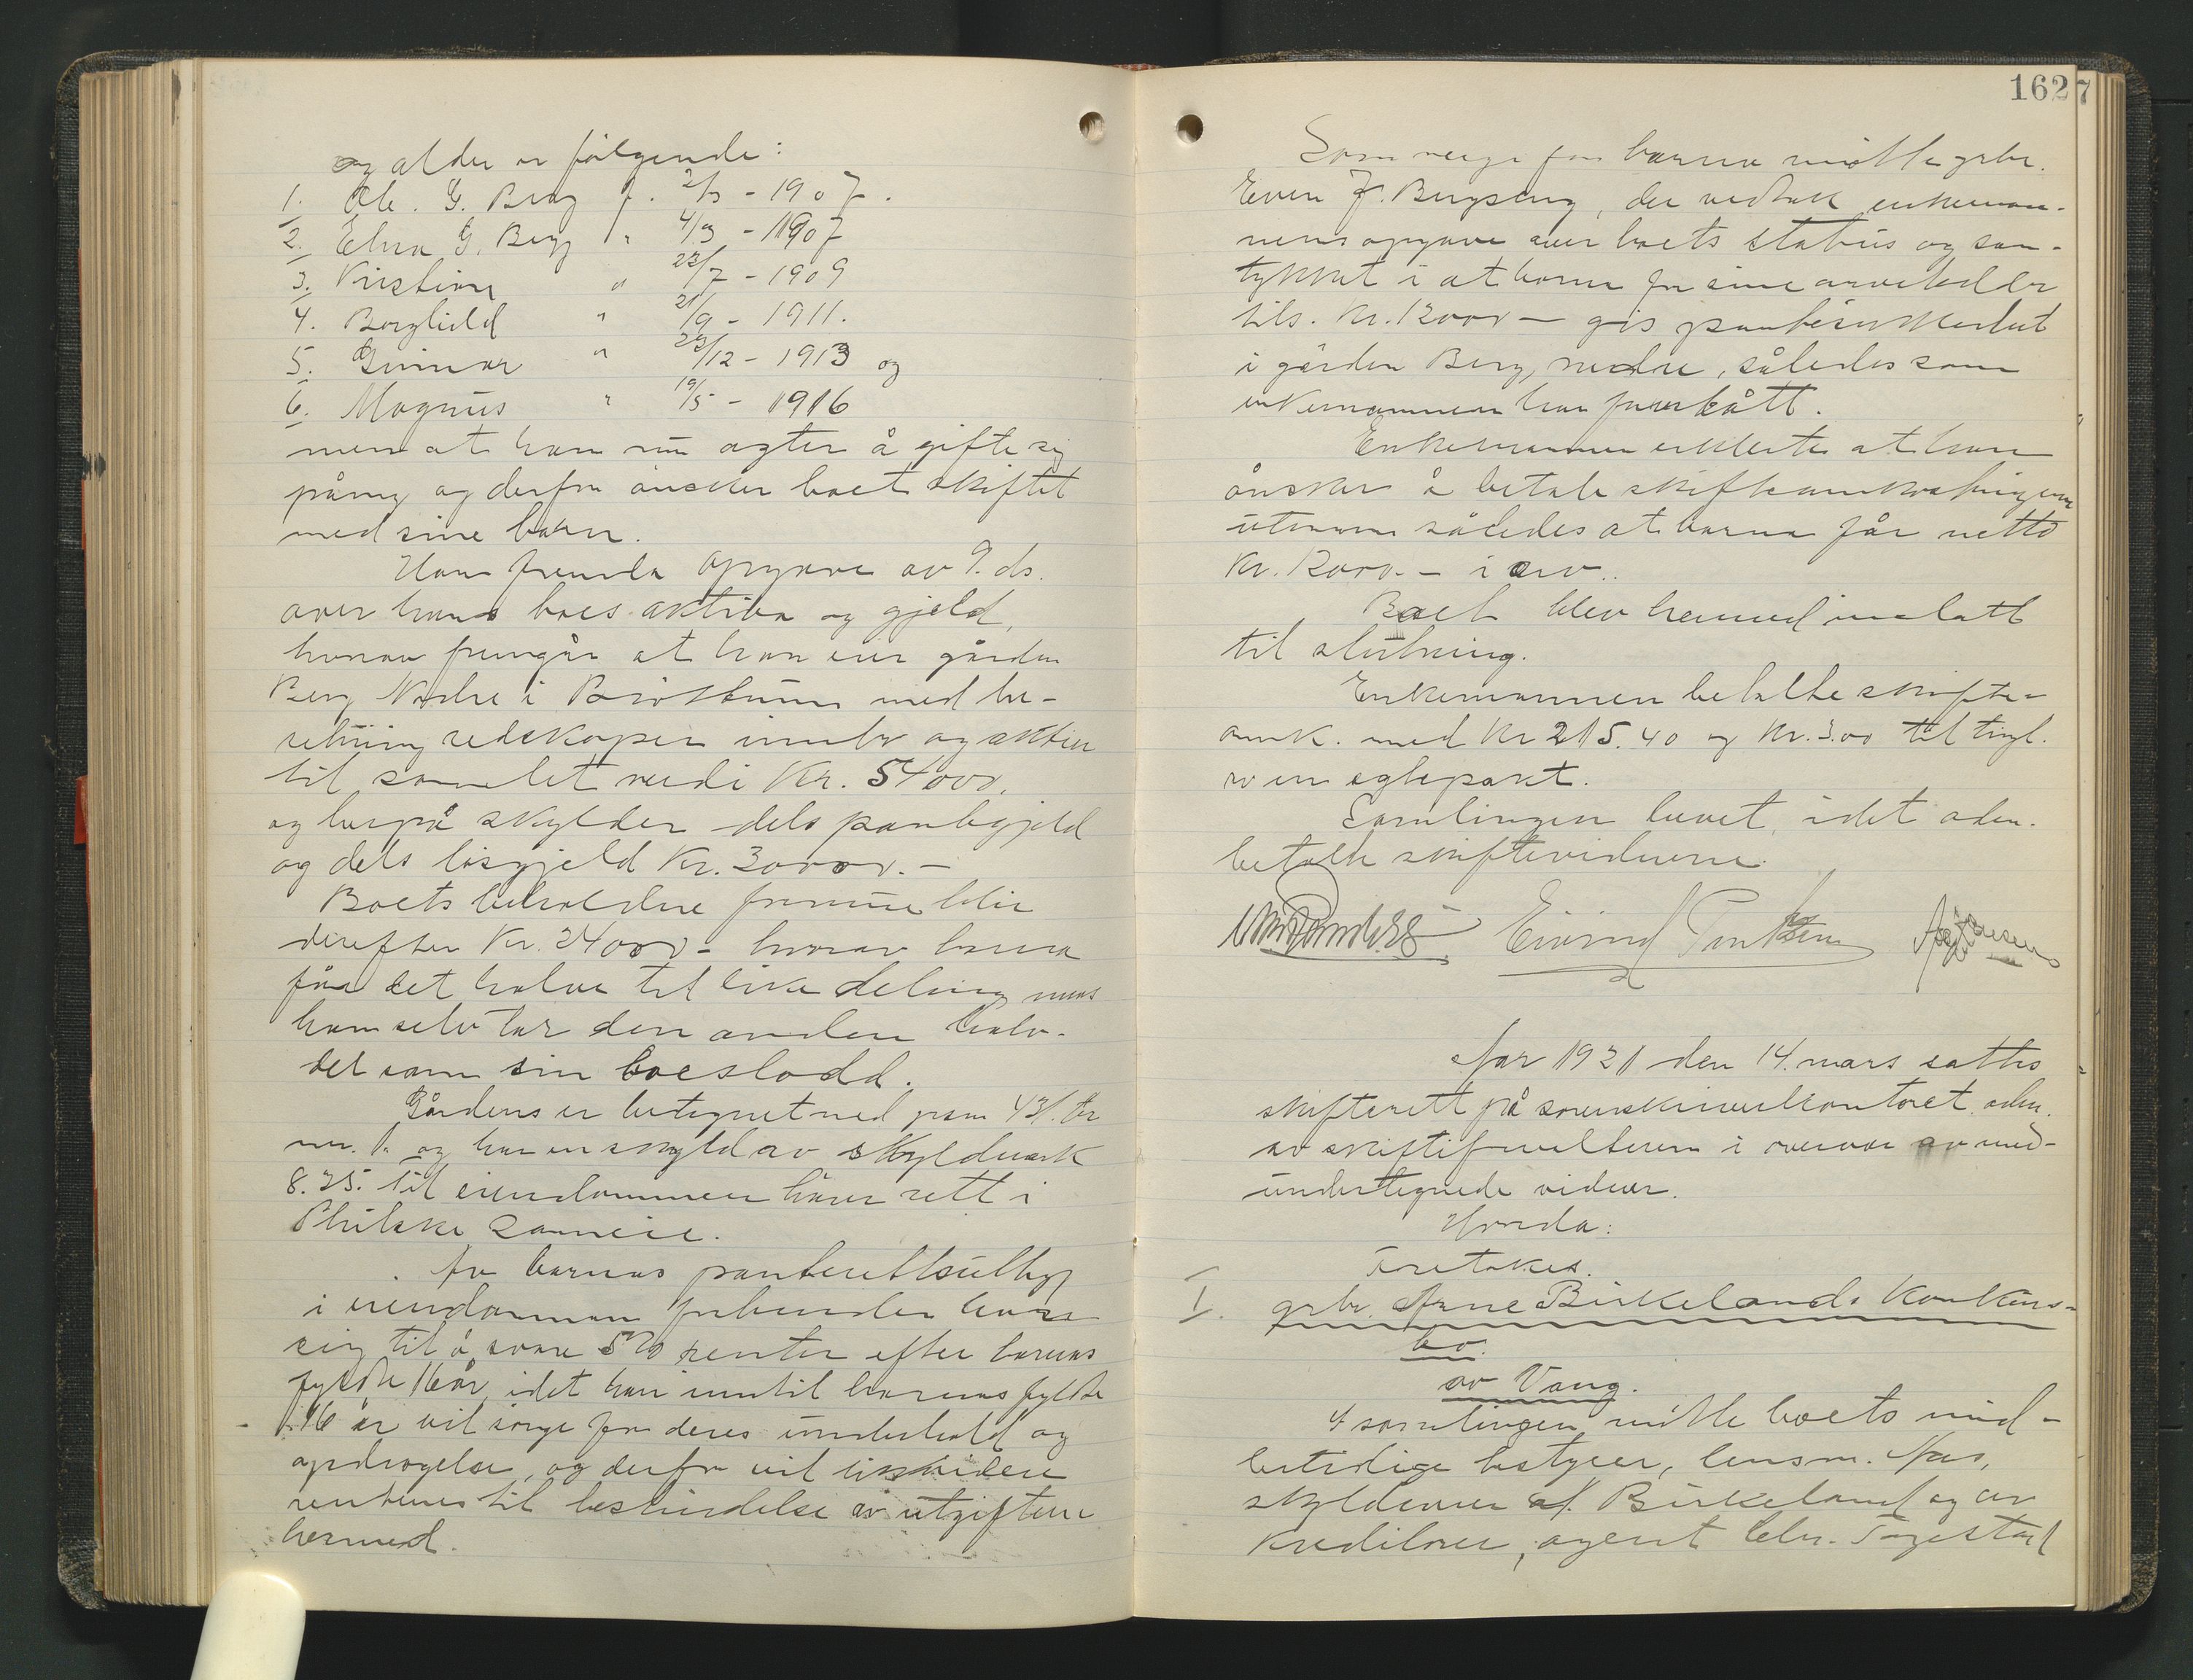 og alder er følgende:
1. Ole. G. Berg f. 2/3 - 1907.
2. Elna G. Berg " 4/3 - 1907
3. Kristian " 23/7 - 1909
4. Borghild " 21/9 - 1911.
5. Gunnar " 23/12 - 1913 og
6. Magnus " 19/5 - 1916
men at han nu agter å gifte sig
påny og derfor ønsker boet skiftet
med sine barn.
Han fremla opgave av 9. ds.
over hans boes aktiva og gjeld,
hvorav fremgår at han eier gården
Berg Nedre i Brøttum med be-
setning redskaper innbo og aktier
til samlet verdi Kr. 54000.
og herpå skylder dels pantegjeld
og dels løsgjeld Kr. 30000.-
Boets beholdne formue blir
derefter Kr. 24000- hvorav barna
får det halve til like deling mens
han selv tar den anden halv-
del som sin boeslodd.
Gårdens er betegnet med gnr 431. br
nr. 1. og har en skyld av skyldmark
8.25. Til eiendommen hører rett i
sameie.
For barnas panterettsutlegg
i eiendommen forbinder han
sig til å svare 5% renter efter barnas
fyldte 16 år, idet han inntil barnas fyldte
16 år vil sørge for deres underhold og
opdragelse, og derfor vil
rentene til bestridelse av utgiftene
hermed.
1627
Som verge for barna møtte grbr.
Even J. Bergseng, der vedtok enkeman-
nens opgave over boets status og sam-
tykket i at barna for sine arvelodder
tils. Kr. 12000- gis panterettsutlegg
i gården Berg, nedre, således som
enkemannen har foreslått.
Enkemannen erklærte at han
ønsker å betale skifteomkostningene
utenom således at barna får netto
Kr. 12000.- i arv.
Boet blev hermed innlatt
til slutning.
Enkemannen betalte skifte-
omk. med Kr 215.40 og Kr. 3.00 til tingl.
av en egtepakt.
Samlingen hevet, idet adm.
betalte skiftevidnene.
Eivind
År 1931 den 14. mars sattes
skifterett på sorenskriverkontoret, adm.
av skifteforvalteren i overvær av med-
undertegnede vidner.
Hvorda:
Foretokes.
I. grbr. Arne Birkelands konkurs-
bo.
av Vang.
I samlingen møtte boets mid-
lertidige bestyrer, lensm. Aas,
skyldneren A. Birkeland og av
kreditorer, agent Chr. Sagestad